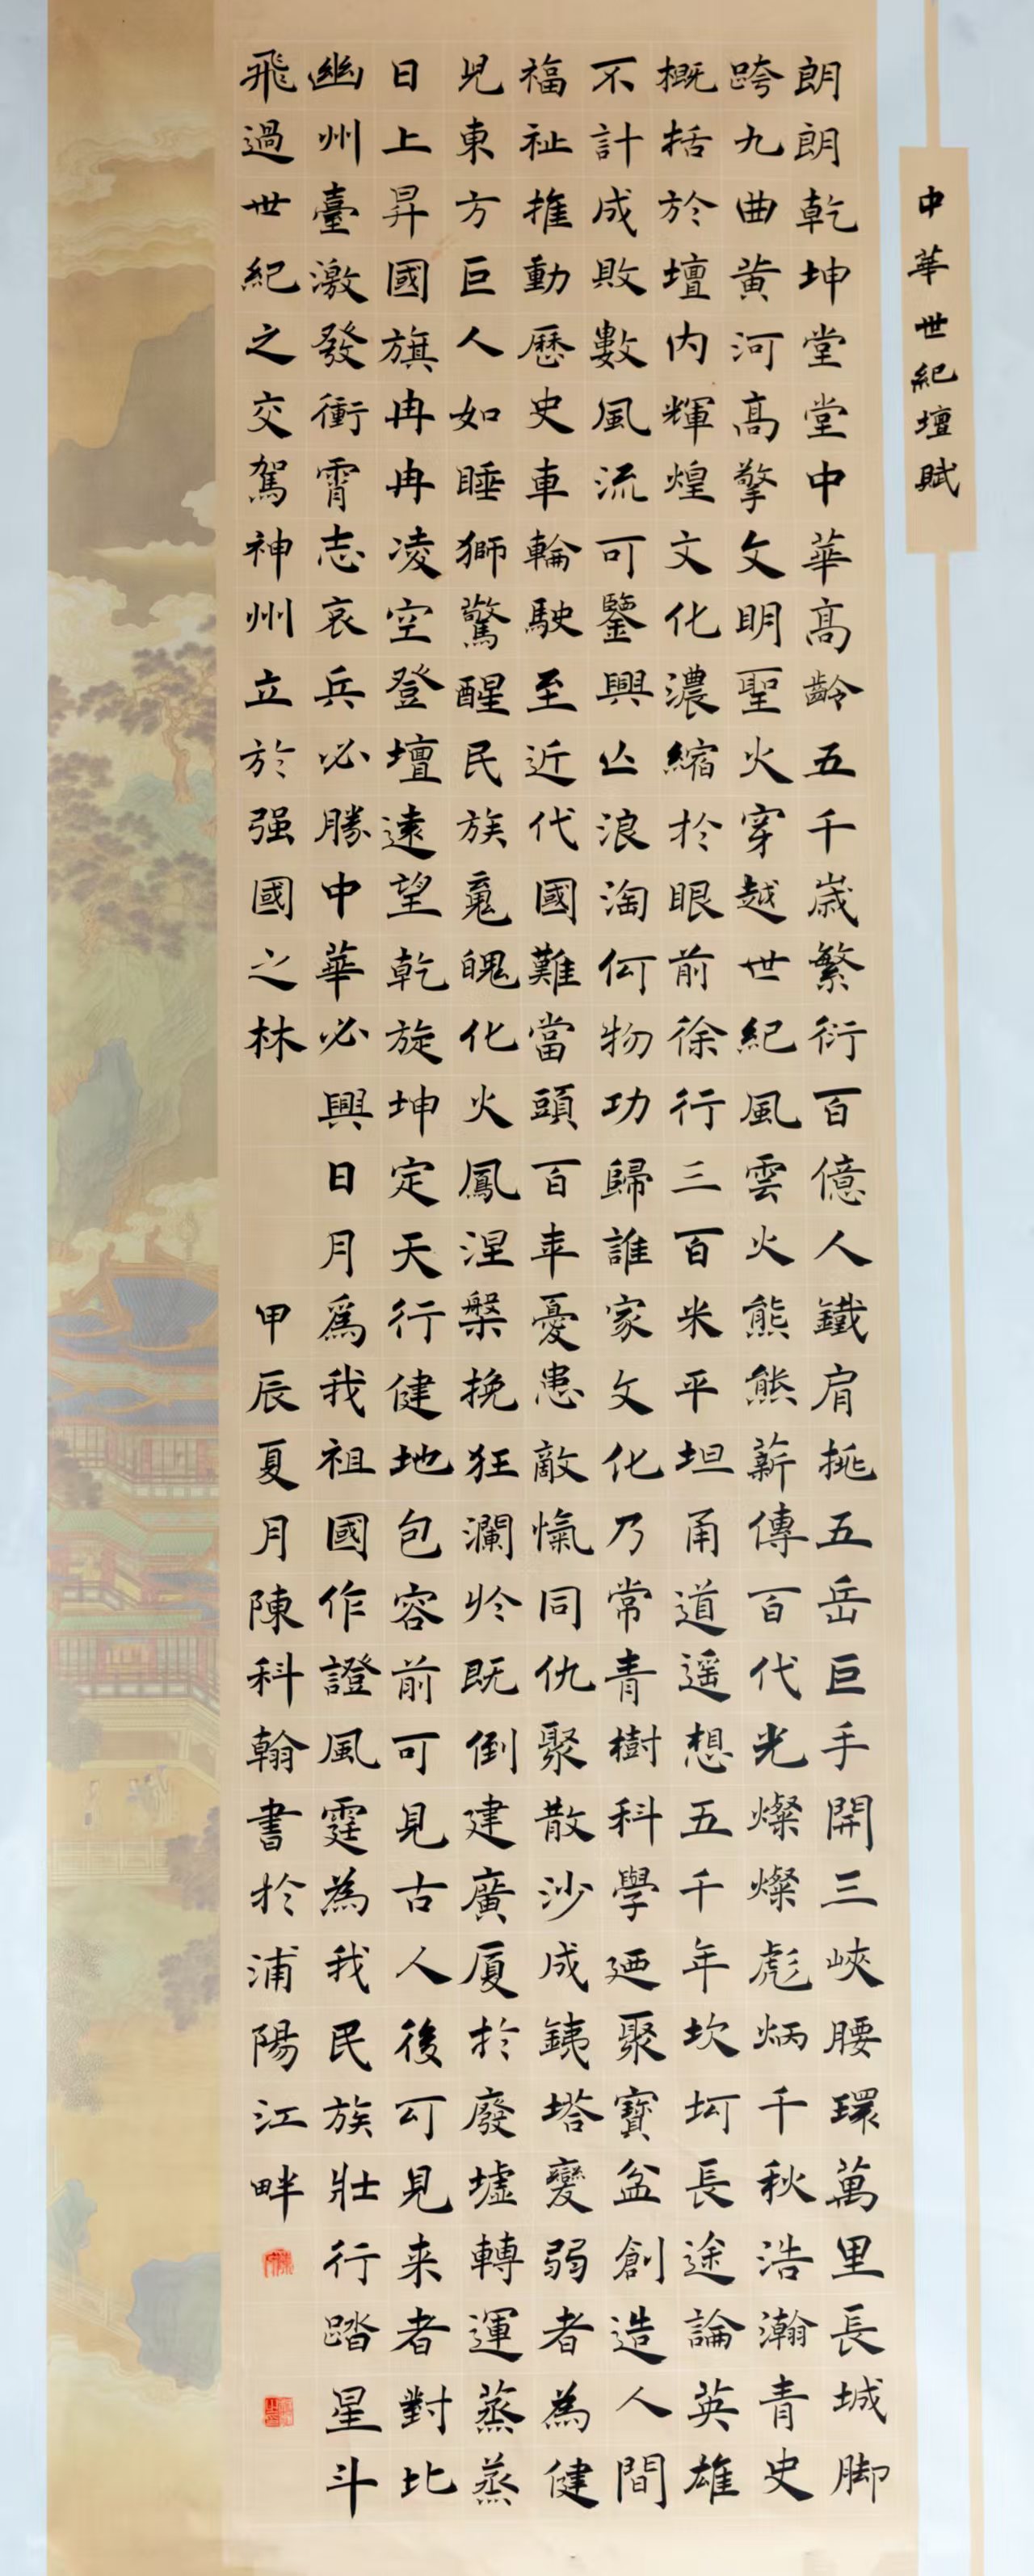 中華世紀壇賦
朗朗乾坤堂堂中華高齡五千歲繁衍百億人鐵肩挑五岳巨手開三峽腰環萬里長城脚
跨九曲黄河高擎文明聖火穿越世紀風雲火熊熊薪傳百代光燦燦彪炳千秋浩瀚青史
概括於壇内輝煌文化濃縮於眼前徐行三百米平坦甬道遥想五千年坎坷長途論英雄
不計成敗數風流可鑒興亡浪淘何物功歸誰家文化乃常青樹科學廼聚寶盆創造人間
福祉推動歷史車輪駛至近代國難當頭百年憂患敵愾同仇聚散沙成鐵塔變弱者為健
兒東方巨人如睡獅驚醒民族魂魄化火鳳涅槃挽狂瀾於既倒建廣厦於廢墟轉運蒸蒸
日上昇國旗冉冉凌空登壇遠望乾旋坤定天行健地包容前可見古人後可見来者對比
幽州臺激發衝霄志哀兵必勝中華必興日月爲我祖國作證風霆為我民族壯行踏星斗
飛過世紀之交駕神州立於强國之林
甲辰夏月陳科翰書於浦陽江畔